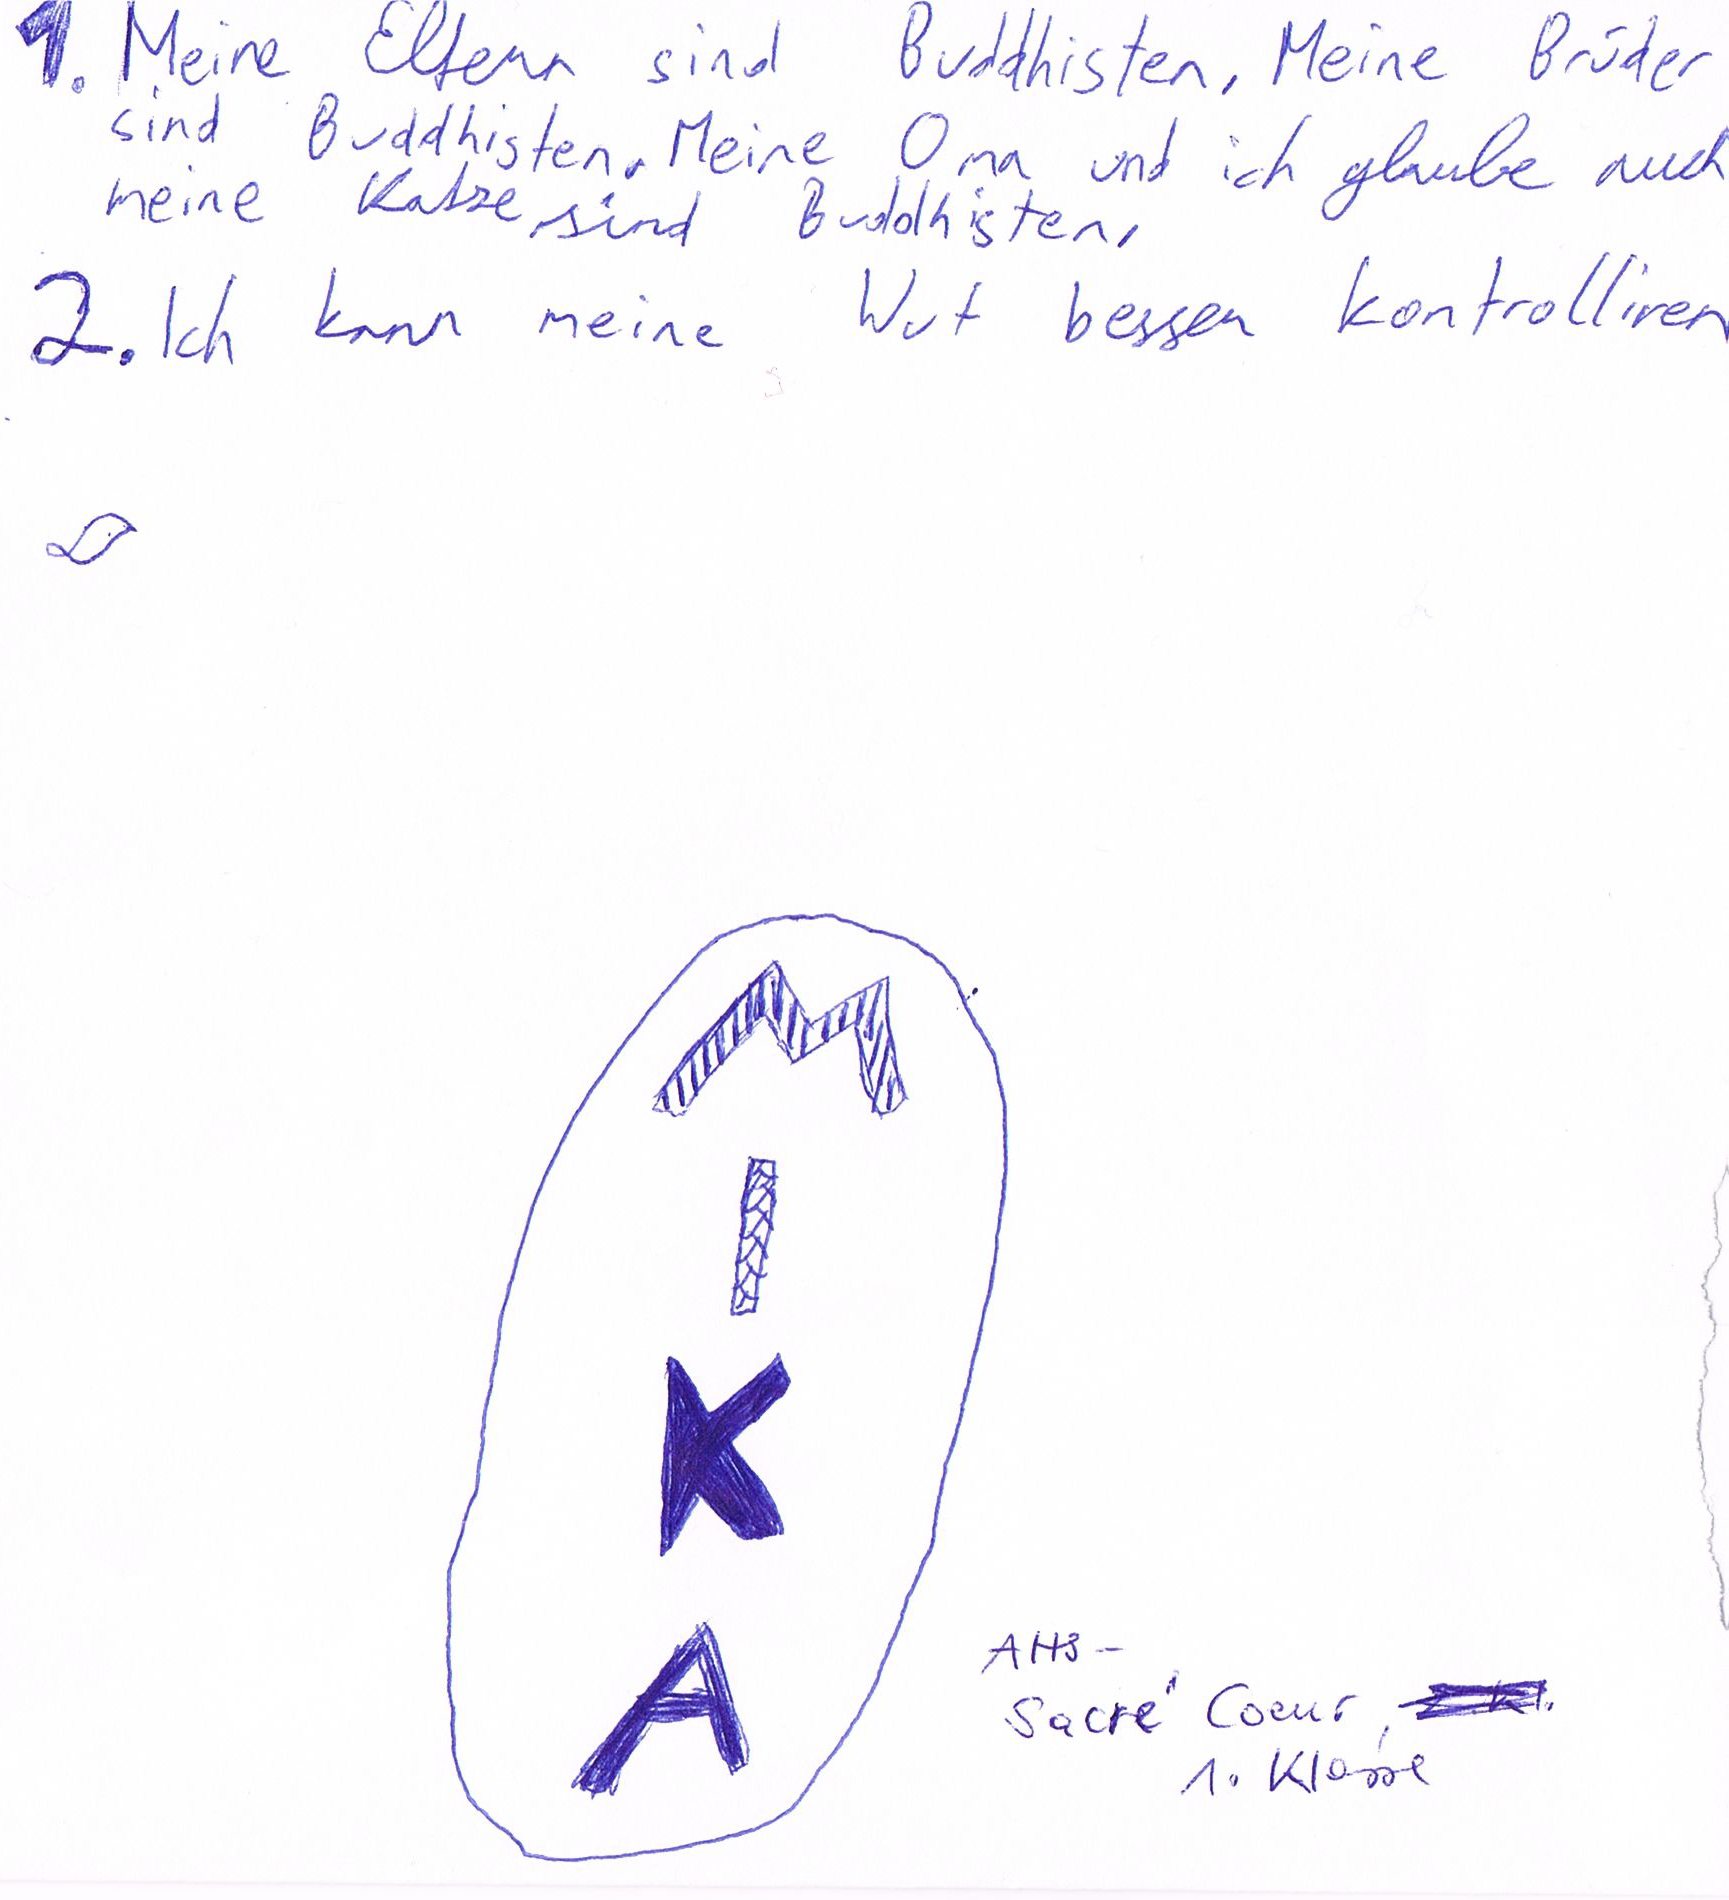 1. Meine Eltern sind Buddhisten, Meine Brüder
sind Buddhisten. Meine Oma und ich glaube auch
meine Katze sind Buddhisten,
2. Ich kann meine Wut besser kontrolliren
M
I
K
A
AHS -
Sacré Coeur,
1. Klasse